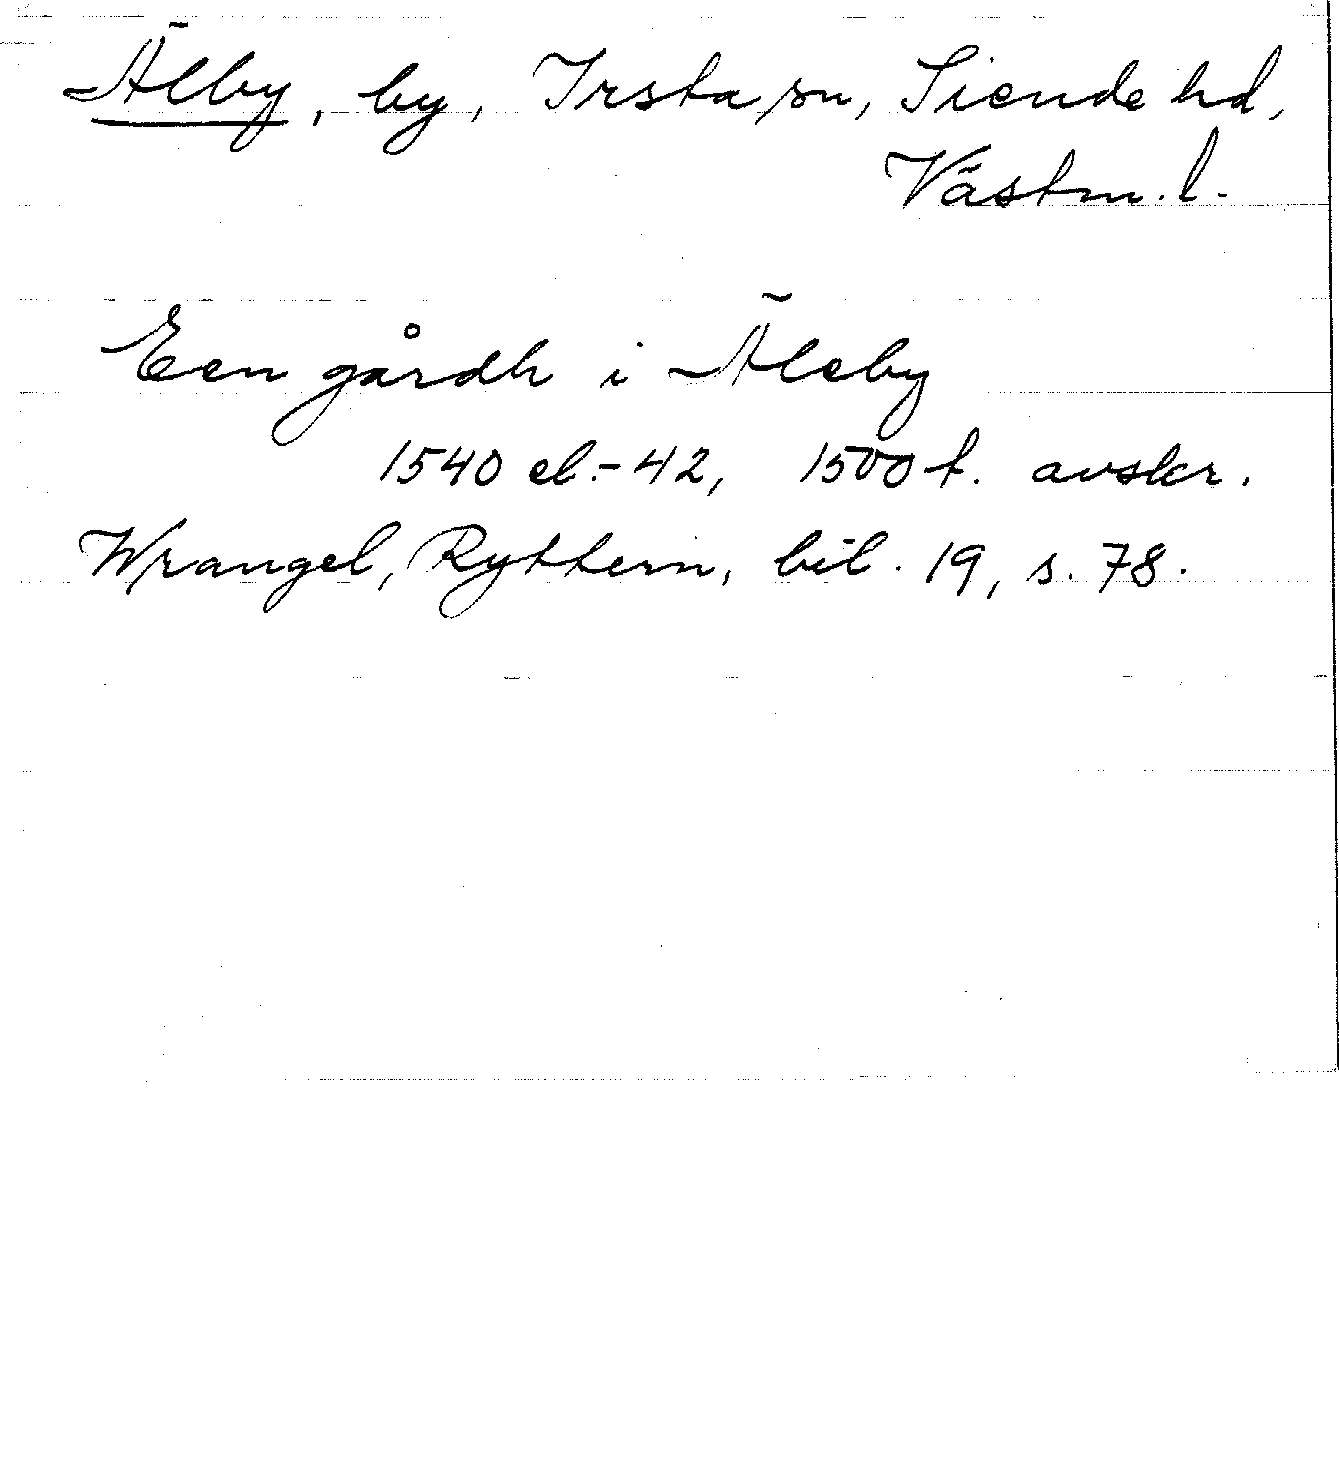 Älby, by, Irsta sn, Siende hd,
Västm. l.
Een gårdh i Äleby
1540 el. -42, 1500 t. avskr.
Wrangel, Ryttern, bil. 19, s. 78.